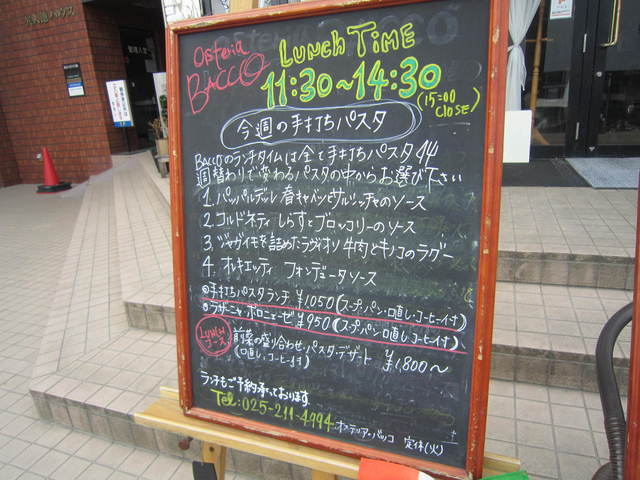 Osteria
BACCO
LUNCH TIME
11:30~14:30
(15:00 CLOSE)
今週の手打ちパスタ
BACCOのランチタイムは全て手打ちパスタ!!
週替わりで変わるパスタの中からお選び下さい
1. パッパルデッレ 春キャベツとサルシッチャのソース
2. コルドネッティ しらすとブロッコリーのソース
3. ジャガイモを詰めたラヴィオリ 牛肉とキノコのラグー
4. オレキエッティ フォンデュータソース
◎手打ちパスタランチ ¥1050 (スープ・パン・口直し・コーヒー付)
◎ラザーニャ・ボロニェーゼ ¥950 (スープ・パン・口直し・コーヒー付)
LUNCH コース
前菜の盛り合わせ・パスタ・デザート ¥1,800~
(口直し・コーヒー付)
ランチもご予約承っております
Tel:025-211-4994 オステリア・バッコ 定休(火)